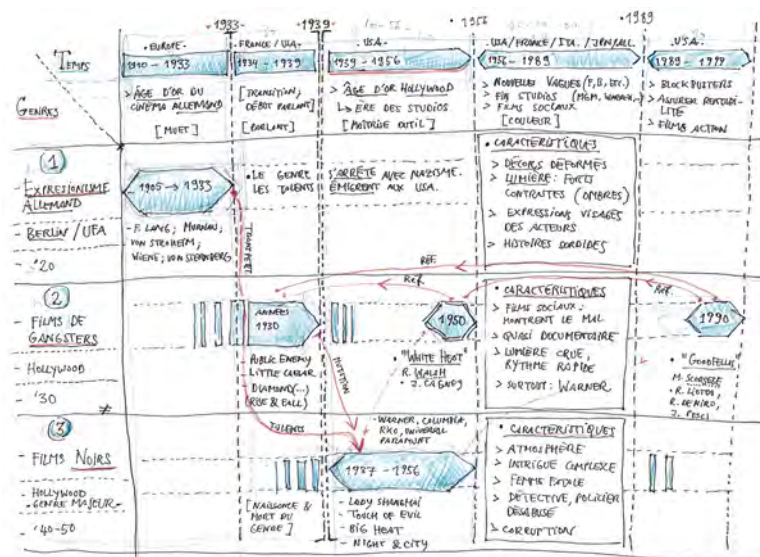 1933
1939
1956
1989
TEMPS
GENRES
• EUROPE •
1910 - 1933
> ÂGE D'OR DU
CINÉMA ALLEMAND
[MUET]
• FRANCE / USA •
1934 - 1939
[TRANSITION,
DÉBUT PARLANT]
[PARLANT]
• USA •
1939 - 1956
> ÂGE D'OR HOLLYWOOD
ÈRE DES STUDIOS
[MAÎTRISE OUTIL]
• USA / FRANCE / ITA. / JPN / ALL.
1956 - 1989
> NOUVELLES VAGUES (F, B, ETC.)
> FIN STUDIOS (MGM, WARNER...)
> FILMS SOCIAUX
[COULEUR]
• U.S.A.
1989 - 1999
> BLOCKBUSTERS
> ASSURER RENTABI-
LITÉ
> FILMS ACTION
1
- EXPRESIONISME
ALLEMAND
- BERLIN / UFA
- '20
1905 → 1933
- F. LANG; MURNAU,
VON STROHEIM;
WIENE; VON STERNBERG
• LE GENRE
LES TALENTS
S'ARRÊTE AVEC NAZISME.
ÉMIGRENT AUX USA.
TRANSFERT
• CARACTÉRISTIQUES
> DÉCORS DÉFORMÉS
> LUMIÈRE: FORTS
CONTRASTES (OMBRES)
> EXPRESSIONS VISAGES
DES ACTEURS
> HISTOIRES SORDIDES
REF
2
- FILMS DE
GANGSTERS
- HOLLYWOOD
- '30
ANNÉES
1930
- PUBLIC ENEMY
LITTLE CAESAR
DIAMOND (...)
(RISE & FALL)
MUTATION
REF.
1950
• "WHITE HEAT"
R. WALSH
• J. CAGNEY
• CARACTÉRISTIQUES
> FILMS SOCIAUX:
MONTRENT LE MAL
> QUASI DOCUMENTAIRE
> LUMIÈRE CRUE,
RYTHME RAPIDE
> SURTOUT: WARNER
REF.
1990
• "GOODFELLAS"
M. SCORSESE
• R. LIOTTA,
R. DE NIRO,
J. PESCI
3
- FILMS NOIRS
- HOLLYWOOD
- GENRE MAJEUR -
- '40-50
TALENTS
[NAISSANCE &
MORT DU
GENRE]
- WARNER, COLUMBIA,
RKO, UNIVERSAL
PARAMOUNT
1937 - 1956
- LADY SHANGHAI
- TOUCH OF EVIL
- BIG HEAT
- NIGHT & CITY
• CARACTÉRISTIQUES
> ATMOSPHÈRE
> INTRIGUE COMPLEXE
> FEMME FATALE
> DÉTECTIVE, POLICIER
DÉSABUSÉ
> CORRUPTION